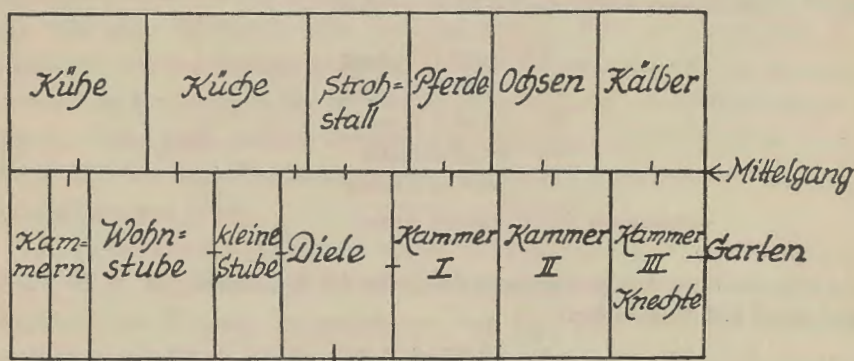 Kühe
Küche
Stroh=
stall
Pferde
Ochsen
Kälber
←Mittelgang
Kam=
mern
Wohn=
stube
kleine
Stube
Diele
Kammer
I
Kammer
II
Kammer
III
Knechte
Garten